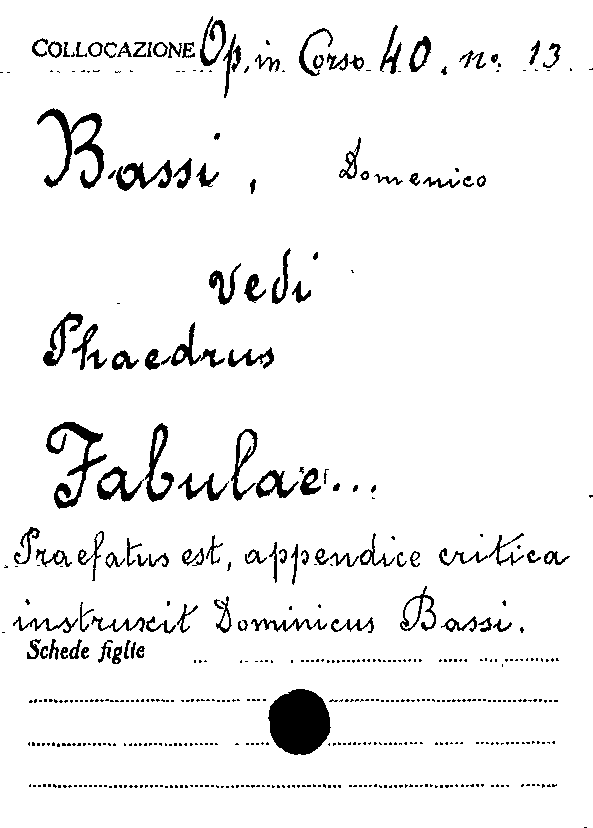 COLLOCAZIONE Op. in Corso 40. no. 13
Bassi, Domenico
vedi
Phaedrus
Fabulae...
Praefatus est, appendice critica
instruxit Dominicus Bassi.
Schede figlie